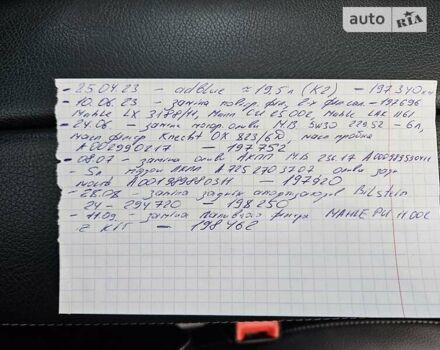 auto RIA
- 25.04.23 - adBlue ≈ 19,5л (К2) - 197340км
- 10.06.23 - заміна повітр. філ, 2х - 197696
Mahle LX 3178/11, Mann CU 25 002, Mahle LAK 1161
- 24.06 - заміна мотор. оливи MB 5W30 229.52 - 6л,
масл. фільтр Knecht OX 823/6D масл пробка
A0029902717 - 197752
- 08.07 - заміна оливи АКПП MB 236.17
- 5л АКПП A7252703707 олива
A0019898803 - 197820
- 28.08 - заміна задніх амортизаторів Bilstein
24 - 294720 - 198250
- 11.09 - заміна паливного фільтра MAHLE
КІТ - 198462